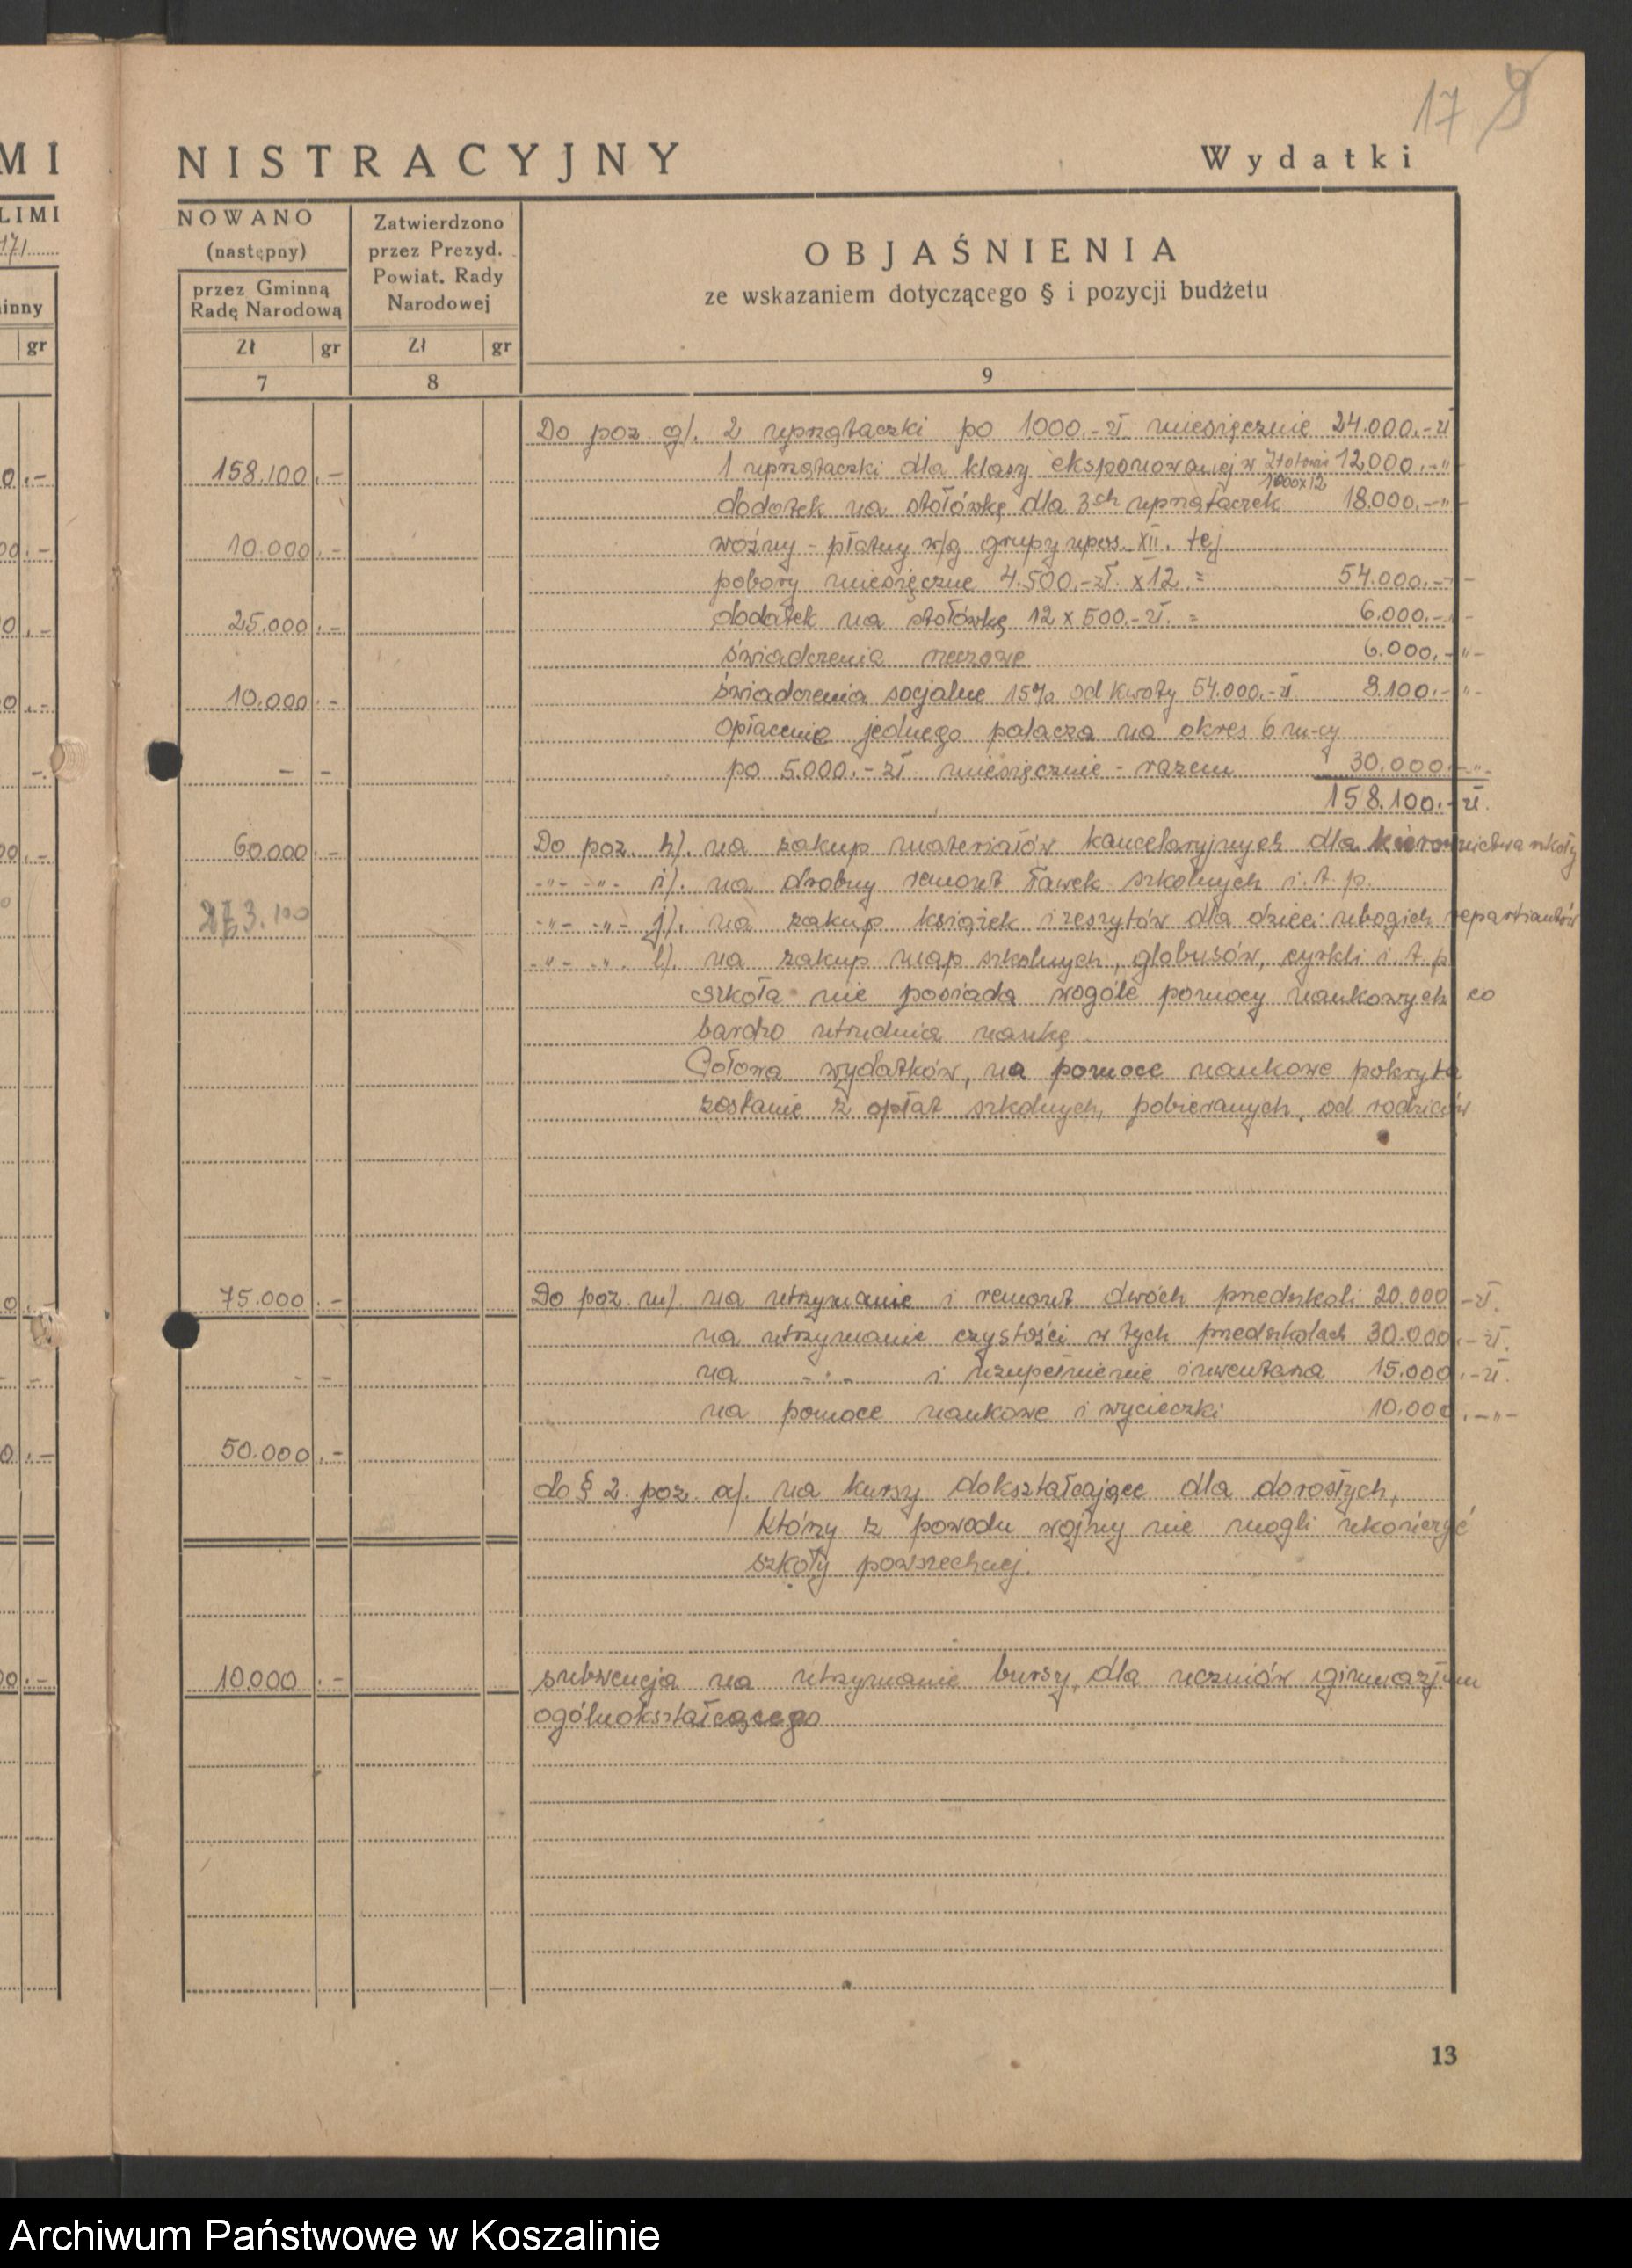 17 9
MI NISTRACYJNY Wydatki
LIMI NOWANO
171 (następny)
inny przez Gminną Radę Narodową
Zatwierdzono przez Prezyd. Powiat. Rady Narodowej
OBJAŚNIENIA
ze wskazaniem dotyczącego § i pozycji budżetu
gr Zł gr Zł gr
7 8 9
Do poz. g/. 2 uprzątaczki po 1000.-zł. miesięcznie 24.000.-zł
0.- 158.100.- 1 uprzątaczki dla klasy eksponowanej w 12.000.-"-
1000x12
dodatek na stołówkę dla 3ch uprzątaczek 18.000.-"-
00.- 10.000.- woźny - płatny w/g grupy upos. XII. tej
pobory miesięczne 4.500.-zł. x 12. = 54.000.-"-
0.- 25.000.- dodatek na stołówkę 12 x 500.-zł. = 6.000.-"-
świadczenia rzeczowe 6.000.-"-
0.- 10.000.- świadczenia socjalne 15% od kwoty 54.000.-zł. 8.100.-"-
opłacenie jednego palacza na okres 6 m-cy
.- - - po 5.000.-zł miesięcznie - razem 30.000.-"-
158.100.-zł.
00.- 60.000.- Do poz. h/. na zakup materiałów kancelaryjnych dla kierownictwa szkoły
-"- -"- i/. na drobny remont ławek szkolnych i.t.p.
3.100 -"- -"- j/. na zakup książek i zeszytów dla dzieci ubogich repatriantów
-"- -"- l/. na zakup map szkolnych, globusów, cyrkli i.t.p
szkoła nie posiada wogóle pomocy naukowych co
bardzo utrudnia naukę.
Połowa wydatków, na pomoce naukowe pokryta
zostanie z opłat szkolnych, pobieranych od rodziców
0.- 75.000.- Do poz. m/. na utrzymanie i remont dwóch przedszkoli 20.000.-zł.
na utrzymanie czystości w tych przedszkolach 30.000.-zł.
- - - - na -"- i uzupełnienie inwentarza 15.000.-zł.
na pomoce naukowe i wycieczki 10.000.-"-
0.- 50.000.-
do § 2. poz. a/. na kursy dokształcające dla dorosłych,
którzy z powodu wojny nie mogli ukończyć
szkoły powszechnej.
00.- 10.000.- subwencja na utrzymanie bursy dla uczniów gimnazjum
ogólnokształcącego
13
Archiwum Państwowe w Koszalinie